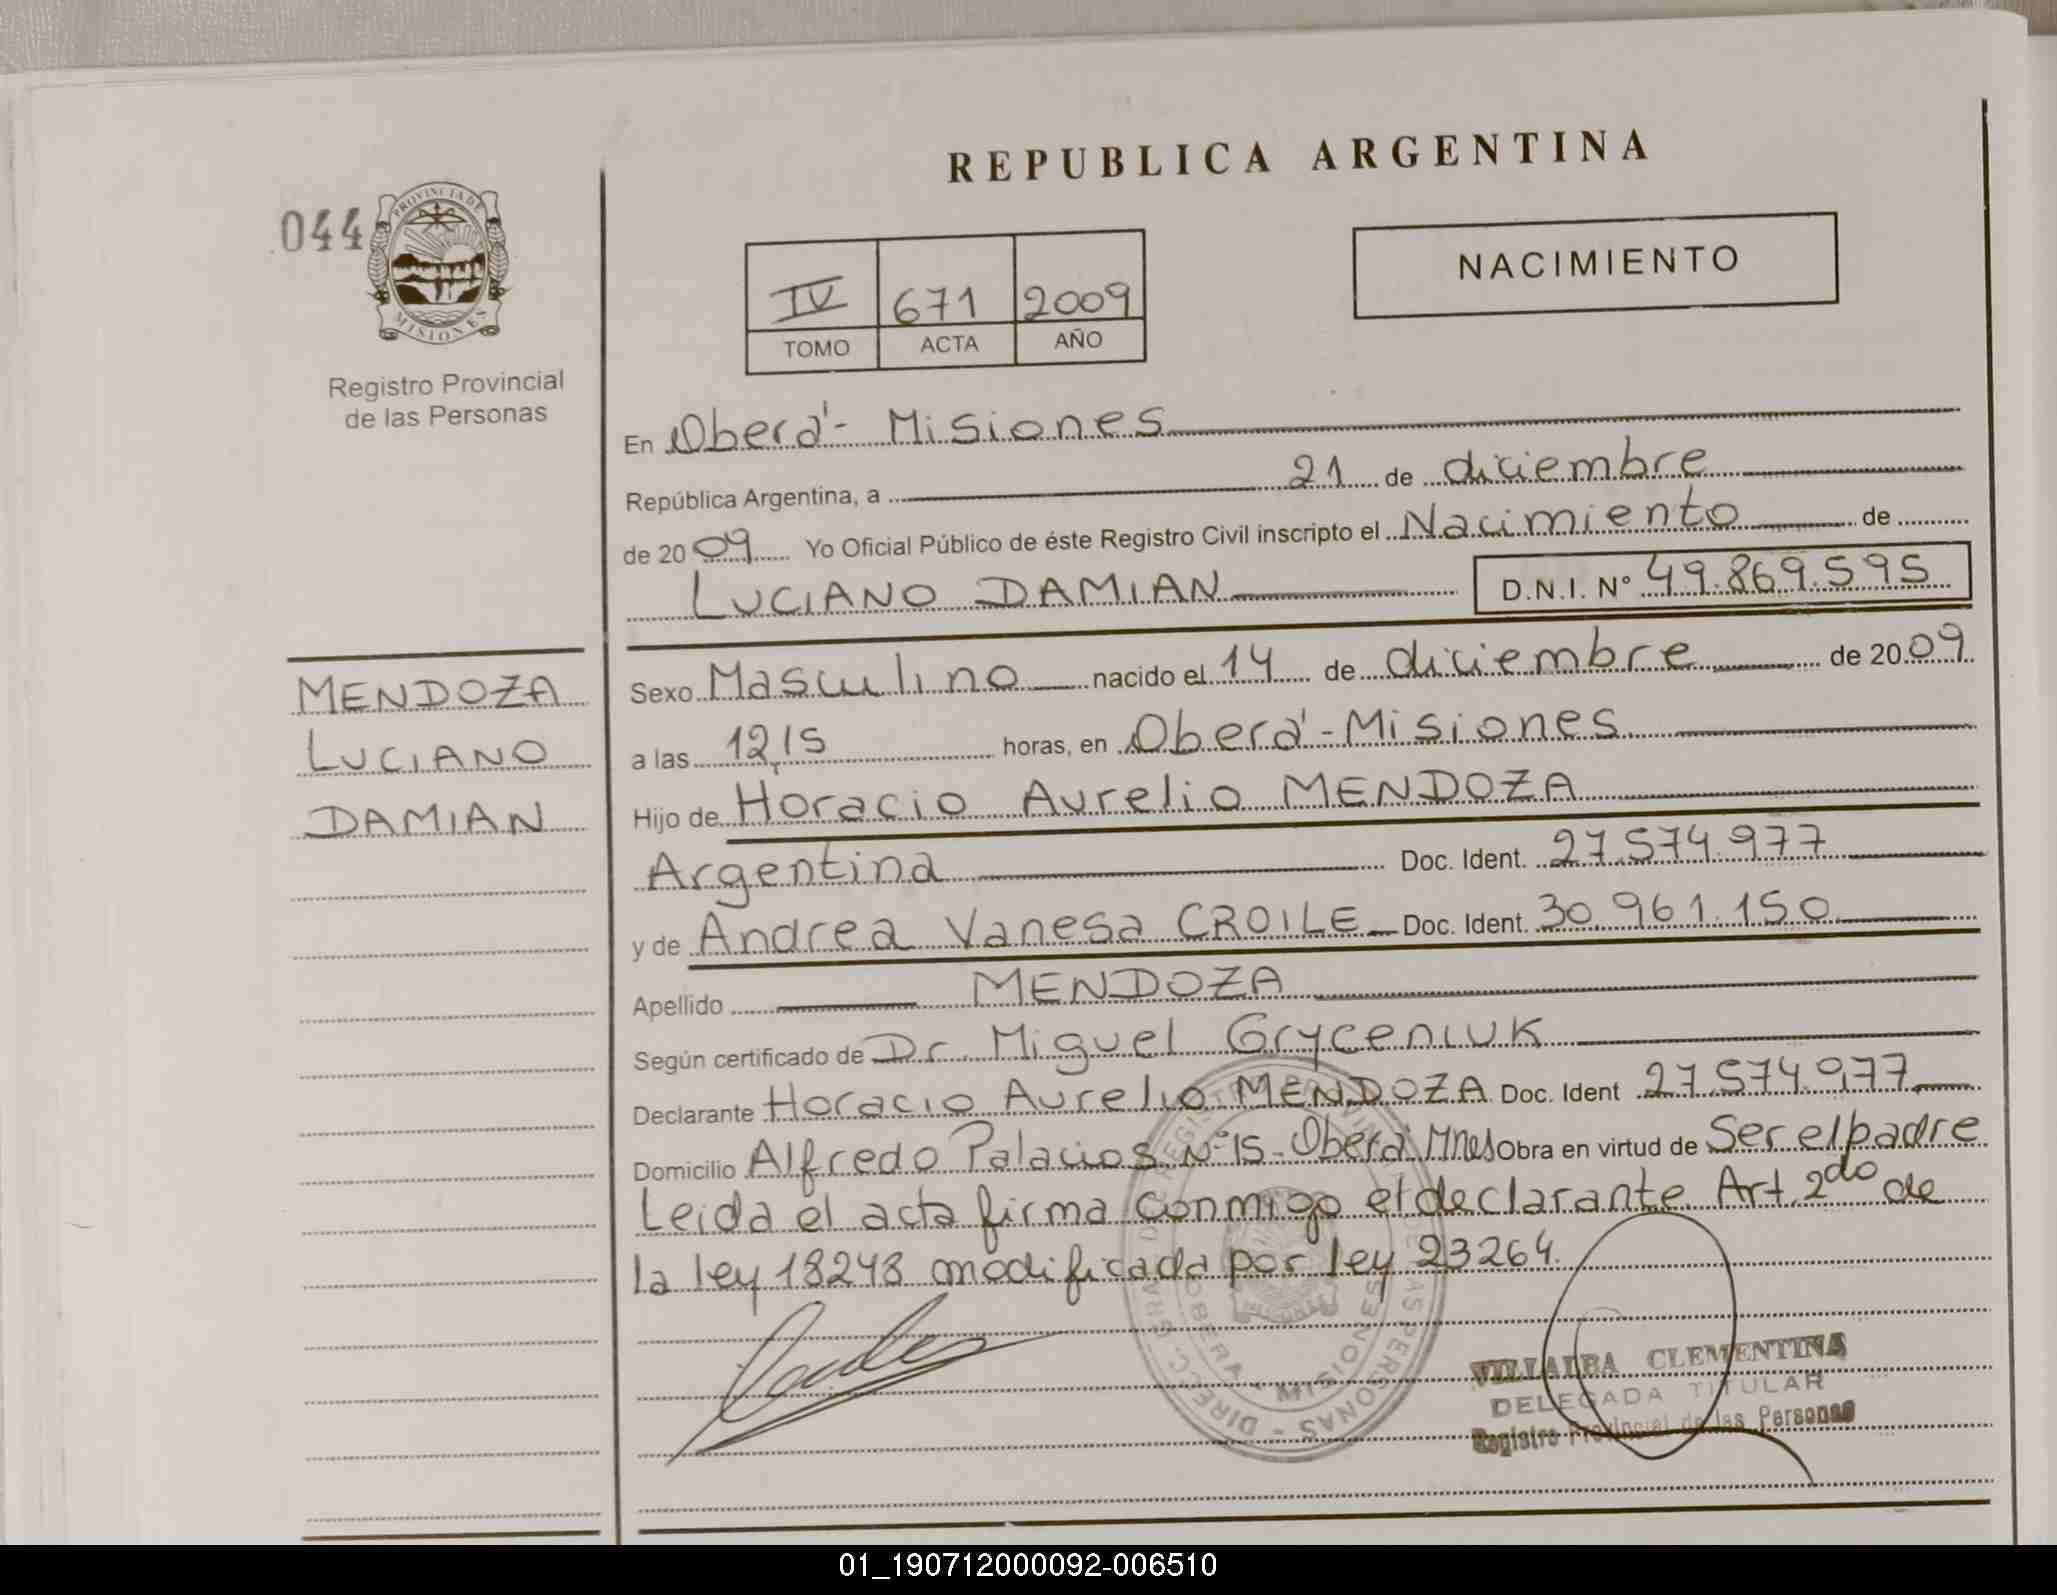 REPUBLICA ARGENTINA
044
PROVINCIA DE
MISIONES
Registro Provincial
de las Personas
NACIMIENTO
IV 671 2009
TOMO ACTA AÑO
En Oberá - Misiones
República Argentina, a 21 de diciembre
de 2009 Yo Oficial Público de éste Registro Civil inscripto el Nacimiento de
LUCIANO DAMIAN D.N.I. Nº 49.869.595
MENDOZA
LUCIANO
DAMIAN
Sexo Masculino nacido el 14 de diciembre de 2009
a las 12,15 horas, en Oberá - Misiones
Hijo de Horacio Aurelio MENDOZA
Argentina Doc. Ident. 27.574.977
y de Andrea Vanesa CROILE Doc. Ident. 30.961.150
Apellido MENDOZA
Según certificado de Dr. Miguel Gryceniuk
Declarante Horacio Aurelio MENDOZA Doc. Ident 27.574.977
Domicilio Alfredo Palacios Nº 15 - Oberá Mnes Obra en virtud de Ser el padre
Leida el acta firma conmigo el declarante. Art. 2do de
la ley 18248 modificada por ley 23264.
OBERA - MISIONES
VILLALBA CLEMENTINA
DELEGADA TITULAR
Registro Provincial de las Personas
01_190712000092-006510